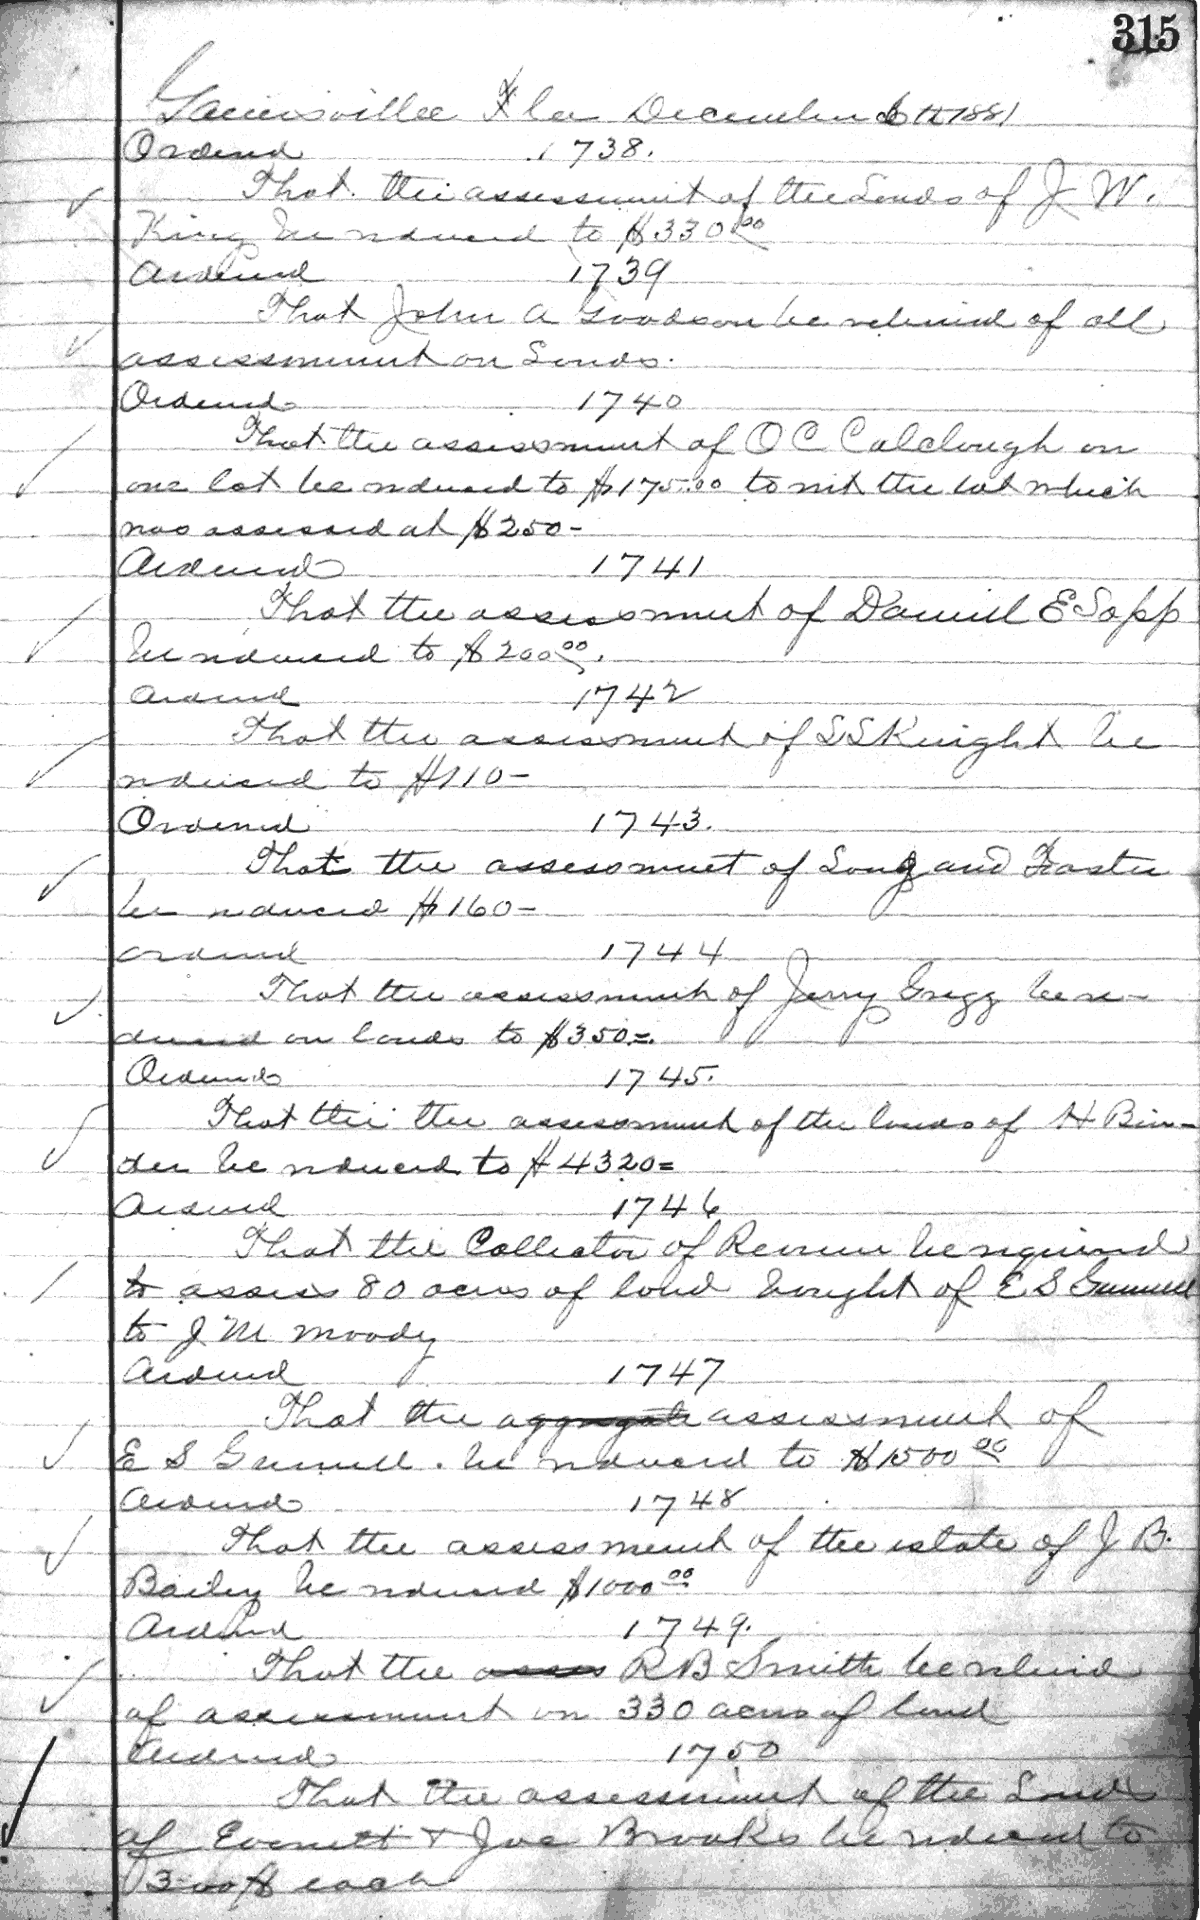 315
Gainesville Fla December 6th 1881
Ordered 1738.
That the assessment of the Lands of J W.
King be reduced to $330.00
Ordered 1739
That John A Goodson be relieved of all
assessment on Lands.
Ordered 1740
That the assessment of O C Colclough on
one lot be reduced to $175.00 to wit the lot which
was assessed at $250-
Ordered 1741
That the assessment of Daniel E Sapp
be reduced to $200 00.
Ordered 1742
That the assessment of S S Knight be
reduced to $110-
Ordered 1743.
That the assessment of Long and Foster
be reduced $160-
ordered 1744
That the assessment of Jerry Gregg be re-
duced on lands to $350=.
Ordered 1745.
That the the assessment of the lands of H Bin-
der be reduced to $4320=
Ordered 1746
That the Collector of Revenue be required
to assess 80 acres of land bought of E S
to J M Moody
Ordered 1747
That the aggregate assessment of
E S be reduced to $1500 00
Ordered 1748
That the assessment of the estate of J B.
Bailey be reduced $1000 00
Ordered 1749.
That the asses R B Smith be relived
of assessment on 330 acres of land
Ordered 1750
That the assessment of the Land
of Everett & Joe Brooks be reduced to
300$ each